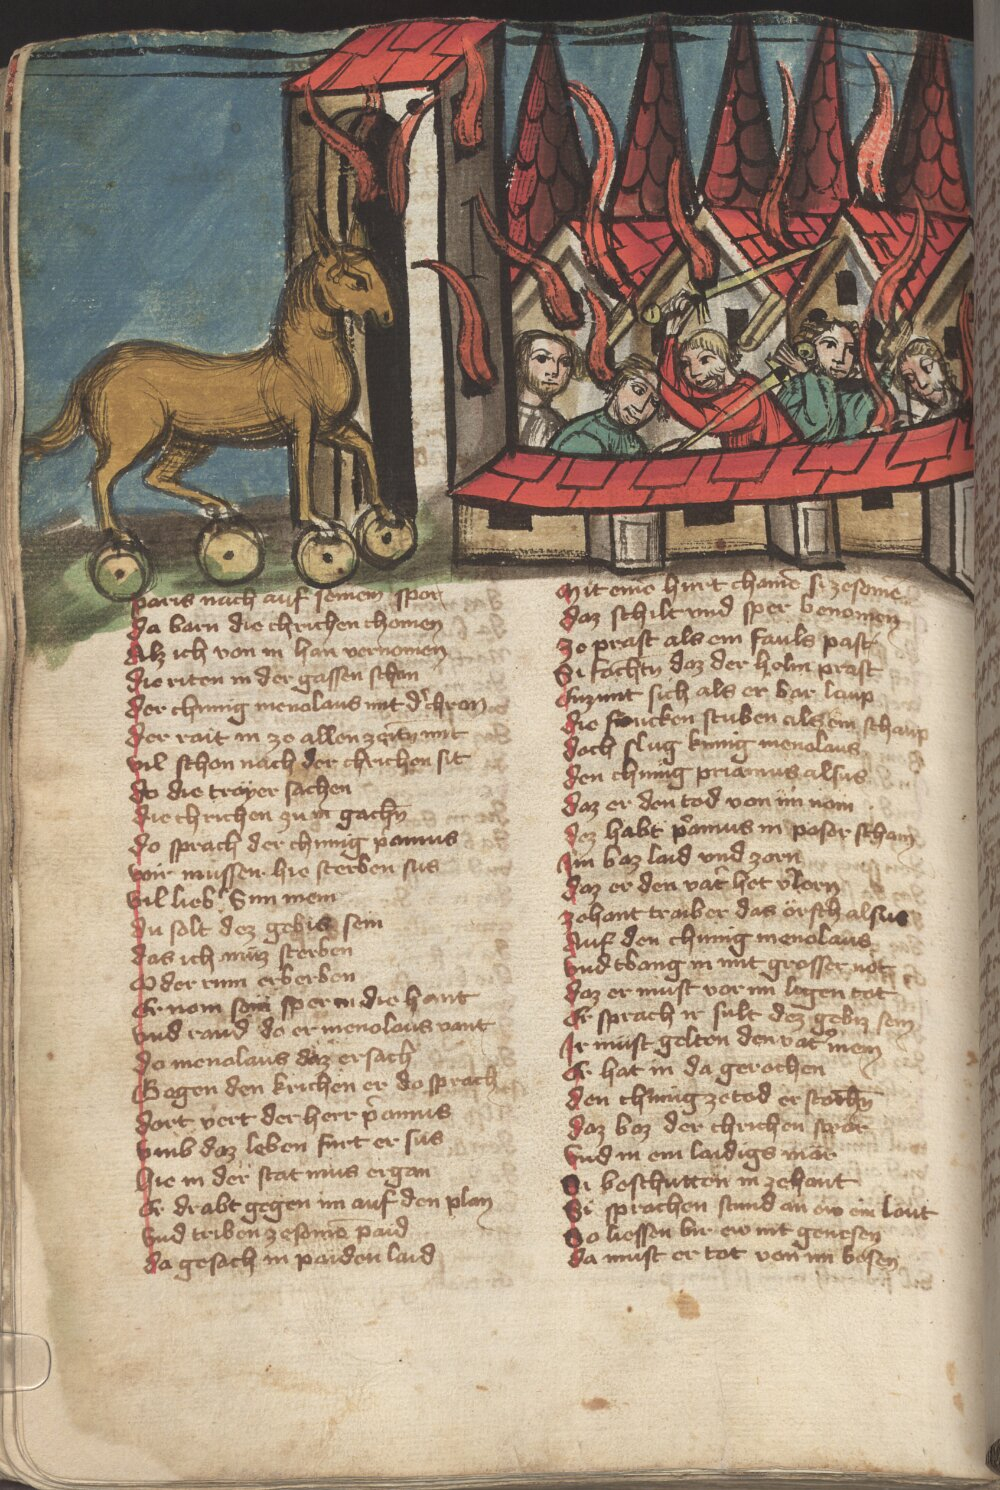 paris nach auf seinem spor
da warn die chrichen chomen
Alz ich von in han vernomen
die riten in der gassen schon
der chunig menolaus mit d' chron
der rait in ze allen zeitn mit
vil schon nach der chrichen sit
do die troyer sachen
die chrichen zu in gachn
do sprach der chunig priamus
wir mussen hie sterben sus
vil lieb' Sun mein
du solt dez gebis sein
das ich müz sterben
Oder rum erberben
Er nom sein sper in die hant
vnd rand do er menolaus vant
do menolaus daz ersach
Gagen den krichen er do sprach
dort vert der herr priamus
vmb daz leben furt er sus
hie in der stat mus ergan
Er drabt gegen im auf den plan
vnd triben zesome paid
da gesach in paiden laid
Mit eine hurt chame si zesome
daz schilt vnd sper benomen
ze prast als ein fauls past
Si fachtn daz der helm prast
Enzunt sich als er bar laup
die funcken stuben als ein schaup
doch slug kunig menolaus
den chunig priamus alsus
daz er den tod von im nam
dez habt priamus in poser scham
Im boz laid vnd zorn
daz er den vat' het v'lorn
zehant traib er das örsch alsus
Auf den chunig menolaus
vnd tbang in mit grosser nöt
daz er must vor im ligen tot
Er sprach ir sult dez gebiz sein
Ir müst gelten den vat' mein
Er hat in da gerochen
den chunig ze tod erstochn
daz boz der chrichen swär
vnd in ein laidigs mär
Si beschutten in zehant
Si sprachen stund an ew ein lant
So liessen bir ew nit genesen
da must er tot von im besen